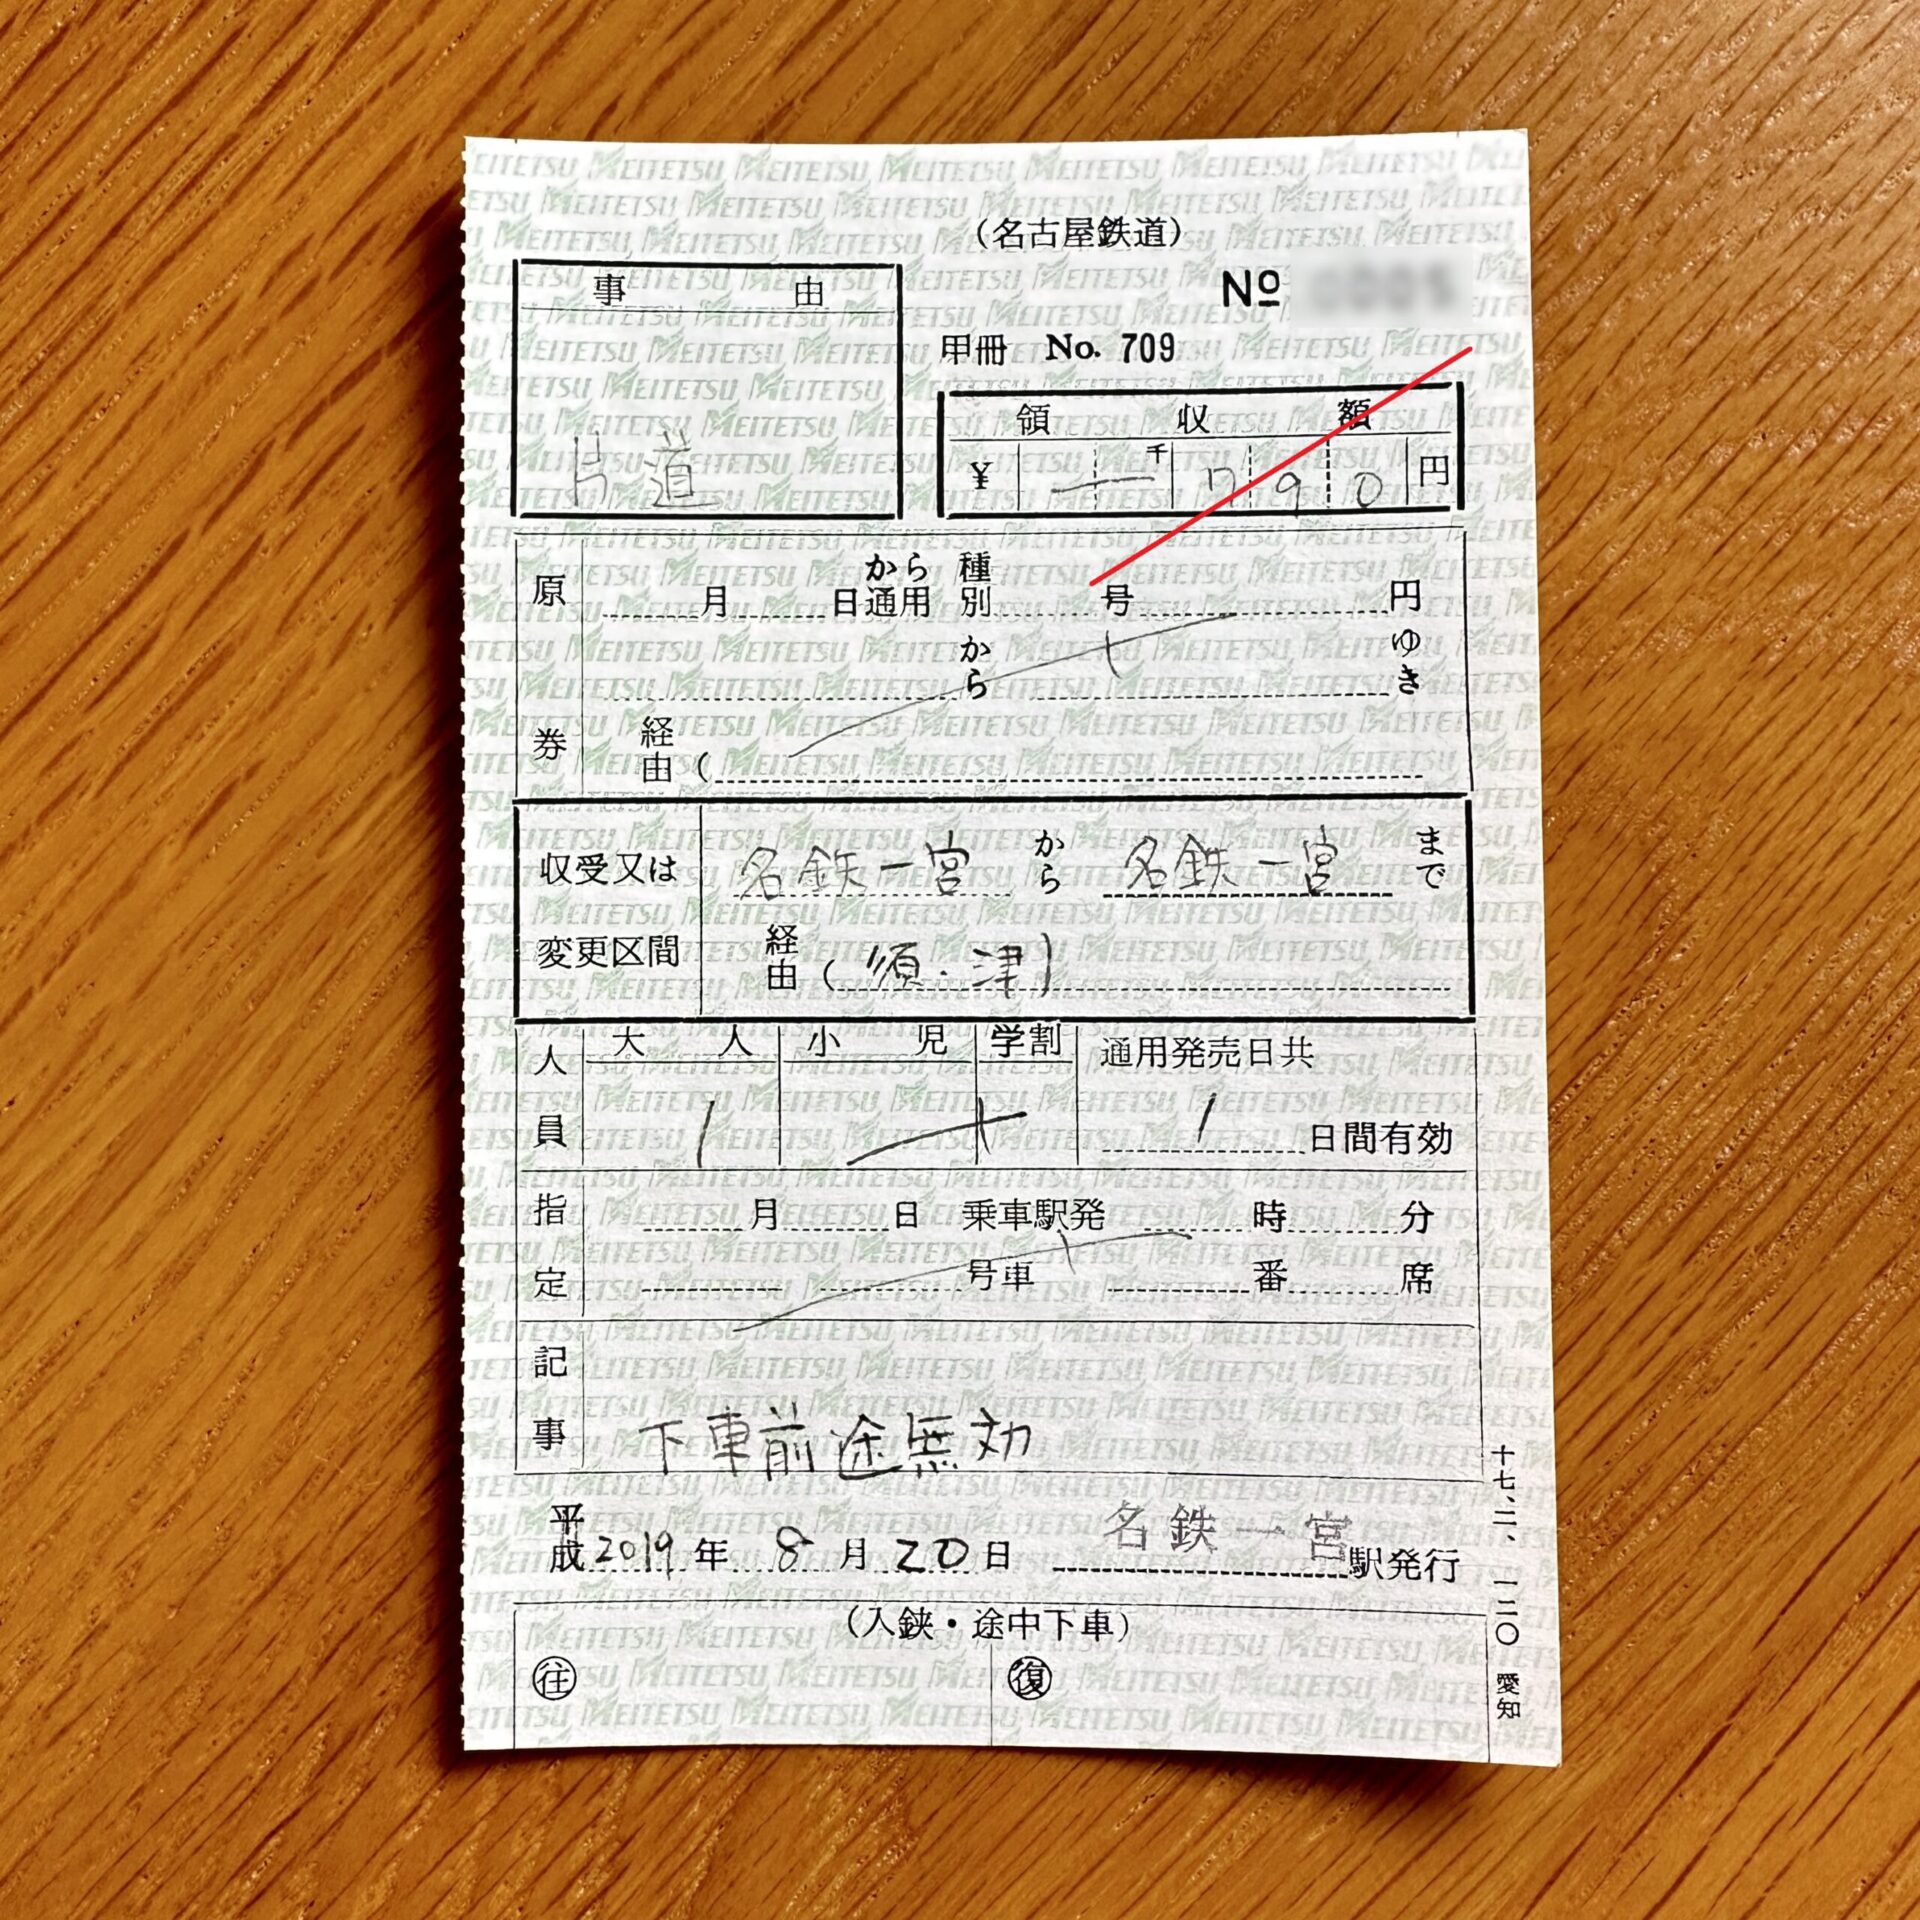 (名古屋鉄道)
事由
片道
No
甲冊 No. 709
領収額
¥ 千 790 円
原券
月 日から通用 種別 号 円
から ゆき
経由(
収受又は変更区間
名鉄一宮 から 名鉄一宮 まで
経由(須・津)
人員
大人 小児 学割 通用発売日共
1 1 日間有効
指定
月 日 乗車駅発 時 分
号車 番 席
記事
下車前途無効
平成 2019 年 8 月 20 日 名鉄一宮 駅発行
(入鋏・途中下車)
往 復
十七、二、一二〇 愛知
MEITETSU